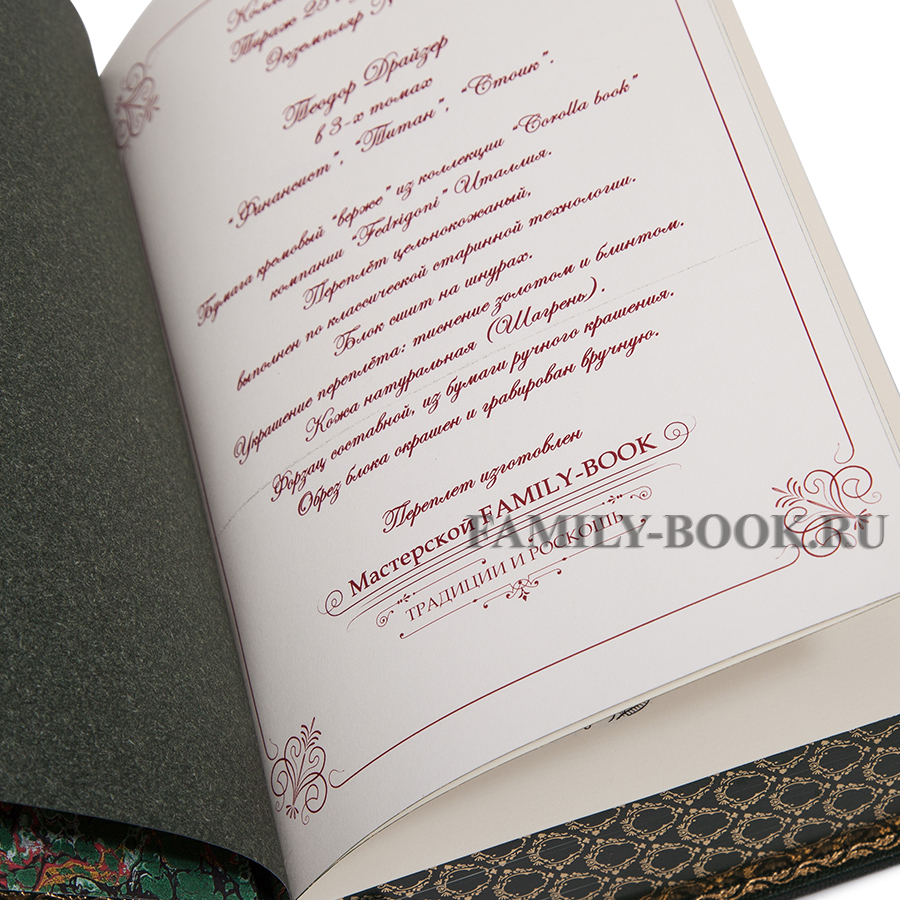 Тираж 25
Экземпляр
Теодор Драйзер
в 3-х томах
"Финансист", "Титан", "Стоик".
Бумага кремовый "верже" из коллекции "Corolla book"
компании "Fedrigoni" Италлия.
Переплёт цельнокожаный,
выполнен по классической старинной технологии.
Блок сшит на шнурах.
Украшение переплёта: тиснение золотом и блинтом.
Кожа натуральная (Шагрень).
Форзац составной, из бумаги ручного крашения.
Обрез блока окрашен и гравирован вручную.
Переплет изготовлен
Мастерской FAMILY-BOOK
ТРАДИЦИИ И РОСКОШЬ
FAMILY-BOOK.RU